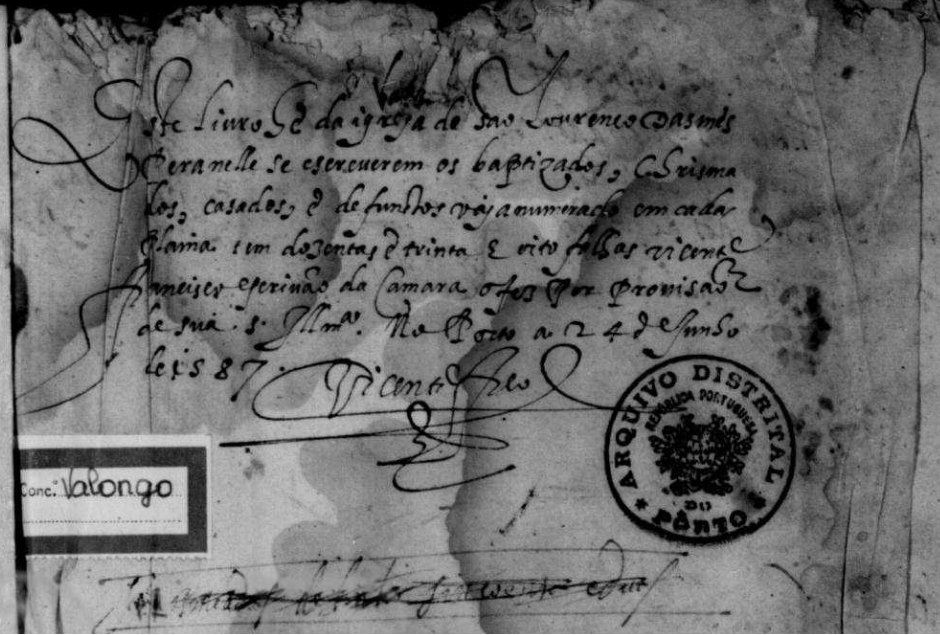 Este Livro hé da igreja de São Lourenço Dasmes
Pera nelle se escreverem os baptizados, Chrisma
dos, casados, e defunctos vaj anumerado em cada
Plaina tem dozentas e trinta e oito folhas vicente
francisco escrivão da Camara o fez por Provisão
de sua .s. Illma. No Porto a 24 de Junho
de 1587.
Vicente
Conc.º Valongo
ARQUIVO DISTRITAL
REPUBLICA PORTUGUESA
DO
PÔRTO